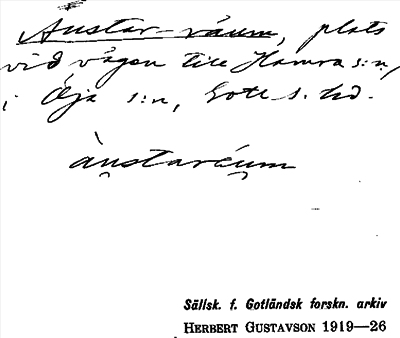 Austar-räum, plats
vid vägen till Hamra s:n,
i Öja s:n, Gotl. s. hd.
àu̯staräu̯m
Sällsk. f. Gotländsk forskn. arkiv
HERBERT GUSTAVSON 1919—26